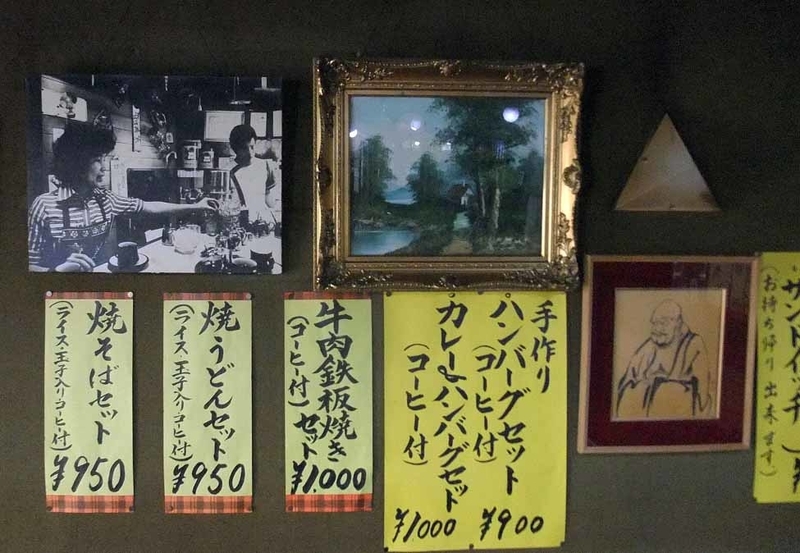 焼そばセット
(ライス・玉子入りコーヒー付)
¥950
焼うどんセット
(ライス・玉子入りコーヒー付)
¥950
牛肉鉄板焼き
セット
(コーヒー付)
¥1.000
手作り
ハンバーグセット
(コーヒー付)
¥900
カレー&ハンバーグセット
(コーヒー付)
¥1000
サンドイッチ
(お持ち帰り出来ます)